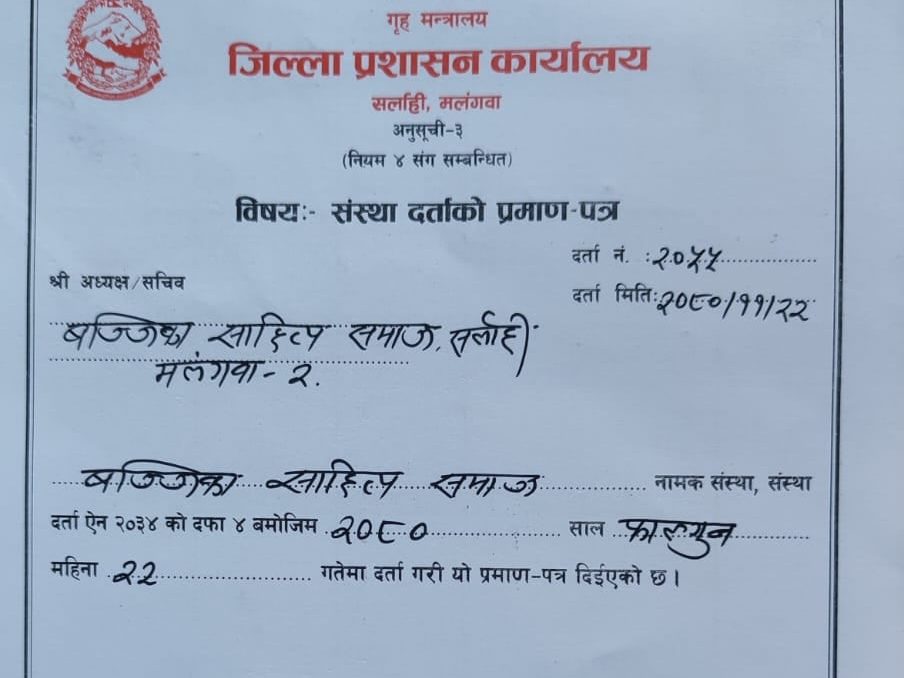 गृह मन्त्रालय
जिल्ला प्रशासन कार्यालय
सर्लाही, मलंगवा
अनुसूची-३
(नियम ४ संग सम्बन्धित)
विषयः- संस्था दर्ताको प्रमाण-पत्र
दर्ता नं. :२०५५
श्री अध्यक्ष/सचिव
दर्ता मिति:२०८०/११/२२
बज्जिका साहित्य समाज, सर्लाही
मलंगवा - २.
बज्जिका साहित्य समाज नामक संस्था, संस्था
दर्ता ऐन २०३४ को दफा ४ बमोजिम २०८० साल फाल्गुन
महिना २२ गतेमा दर्ता गरी यो प्रमाण-पत्र दिईएको छ।